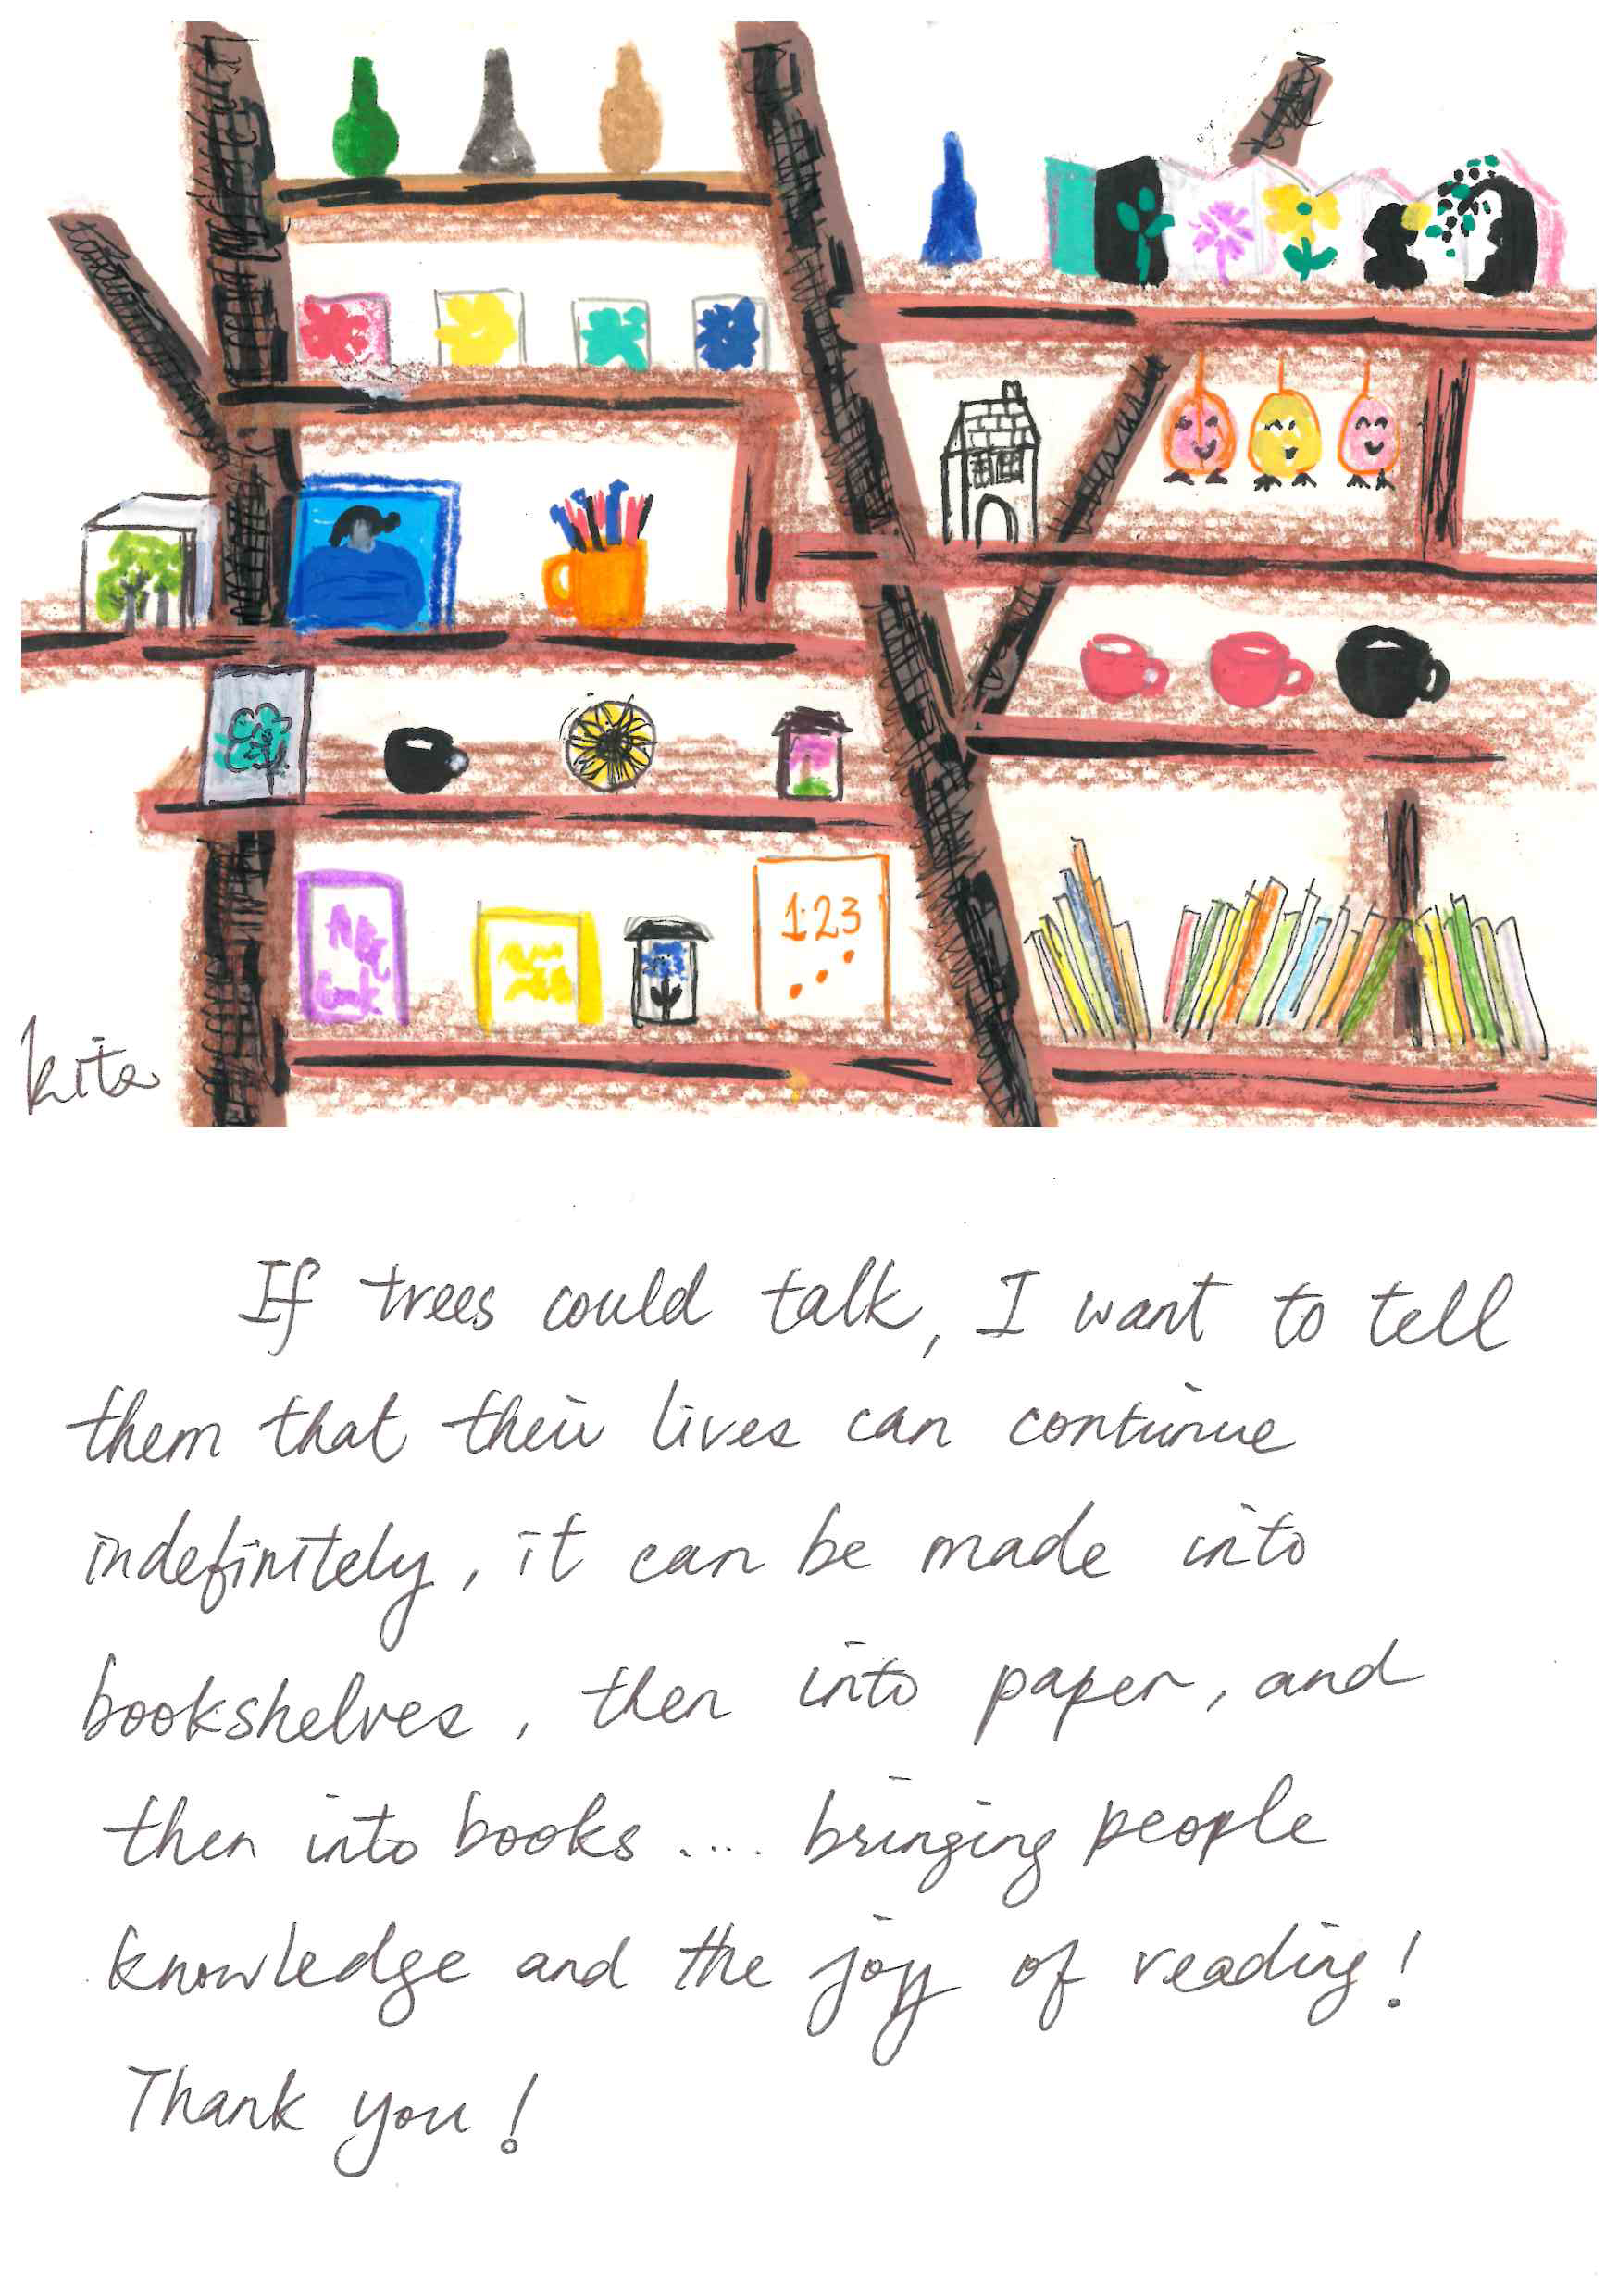 123
kita
If trees could talk, I want to tell
them that their lives can continue
indefinitely, it can be made into
bookshelves, then into paper, and
then into books .... bringing people
knowledge and the joy of reading!
Thank you!